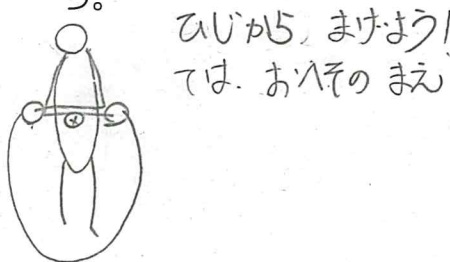 う。
ひじから まげよう!
ては、おへその まえ